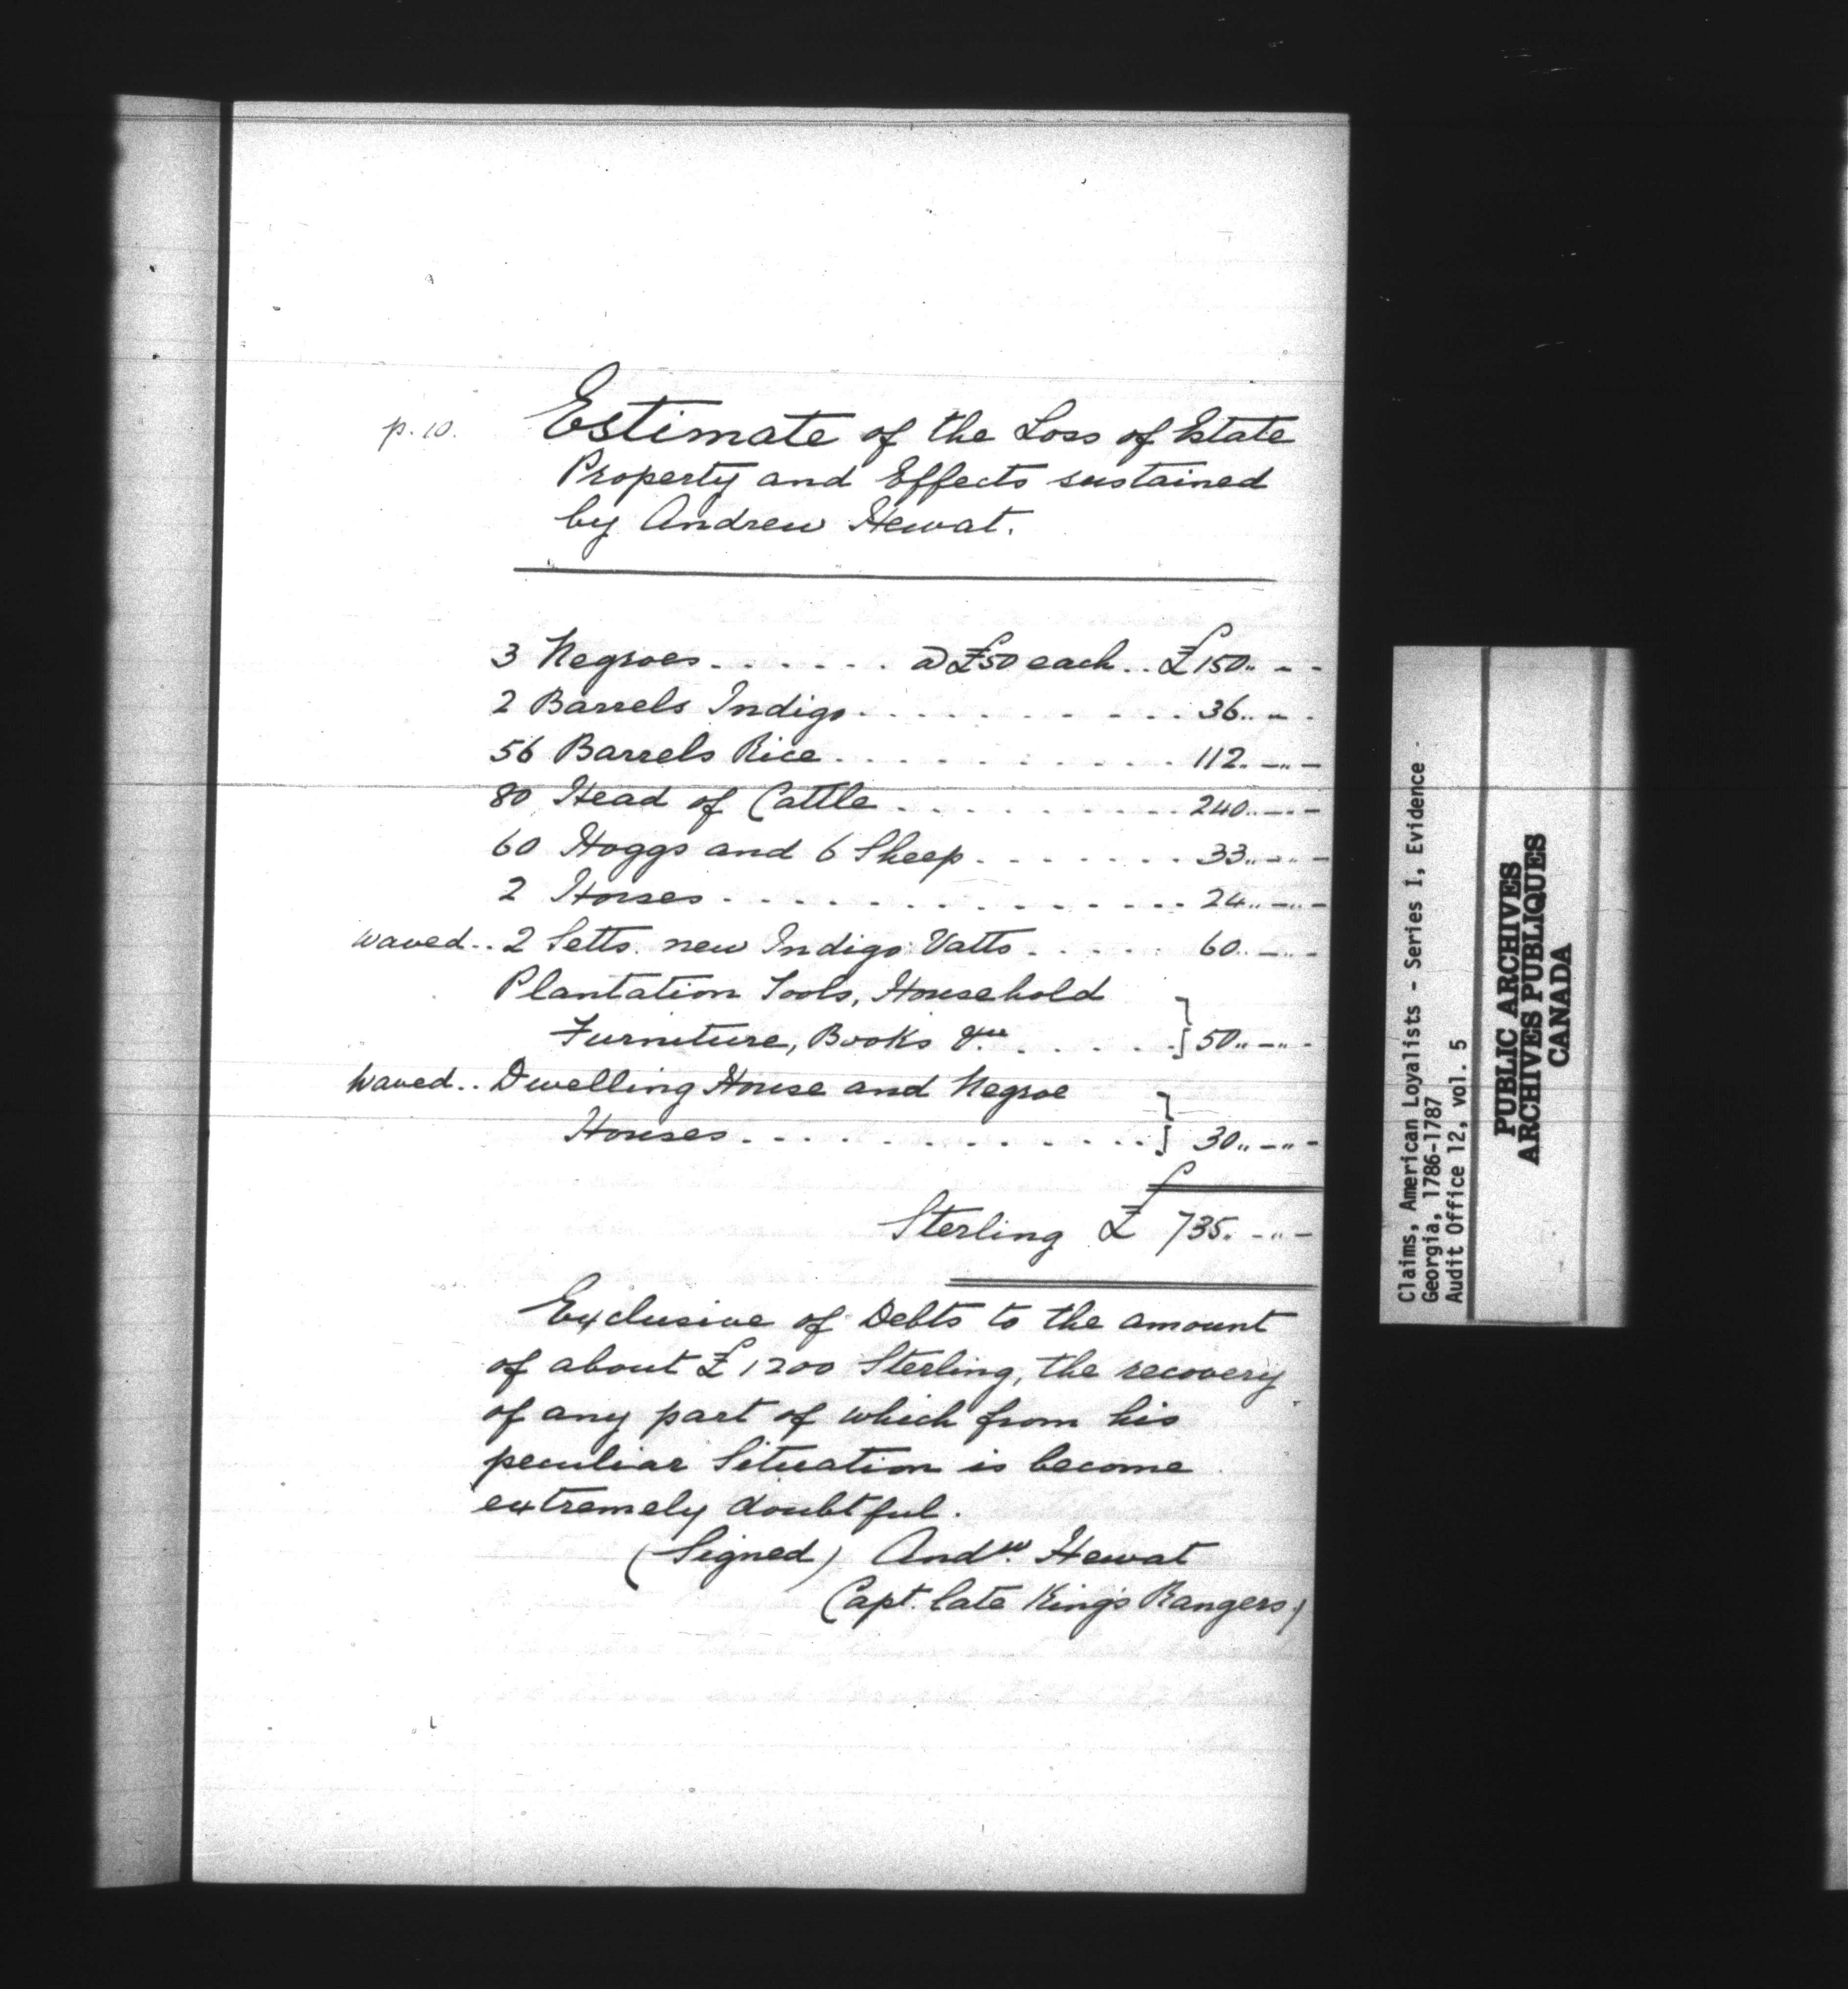 p. 10.
Estimate of the Loss of Estate
Property and Effects sustained
by Andrew Hewat.
3 Negroes. . . . . . . @ £50 each . . £150.. - -
2 Barrels Indigo . . . . . . . . . . 36.. - -
56 Barrels Rice . . . . . . . . . . . 112. -..-
80 Head of Cattle . . . . . . . . . . 240..-..-
60 Hoggs and 6 Sheep . . . . . . . 33..-..-
2 Horses . . . . . . . . . . . . . . . 24..-..-
waved.. 2 Setts. new Indigo Vatts . . . . . 60..-..-
Plantation Tools, Household
Furniture, Books &ca. . . . . . } 50..-..-
Waved.. Dwelling House and Negroe
Houses . . . . . . . . . . . . . . } 30..-..-
Sterling £ 735. -..-
Exclusive of Debts to the amount
of about £1200 Sterling, the recovery
of any part of which from his
peculiar Situation is become
extremely doubtful.
(Signed) Andw. Hewat
Capt. late King's Rangers)
Claims, American Loyalists - Series I, Evidence -
Georgia, 1786-1787
Audit Office 12, vol. 5
PUBLIC ARCHIVES
ARCHIVES PUBLIQUES
CANADA